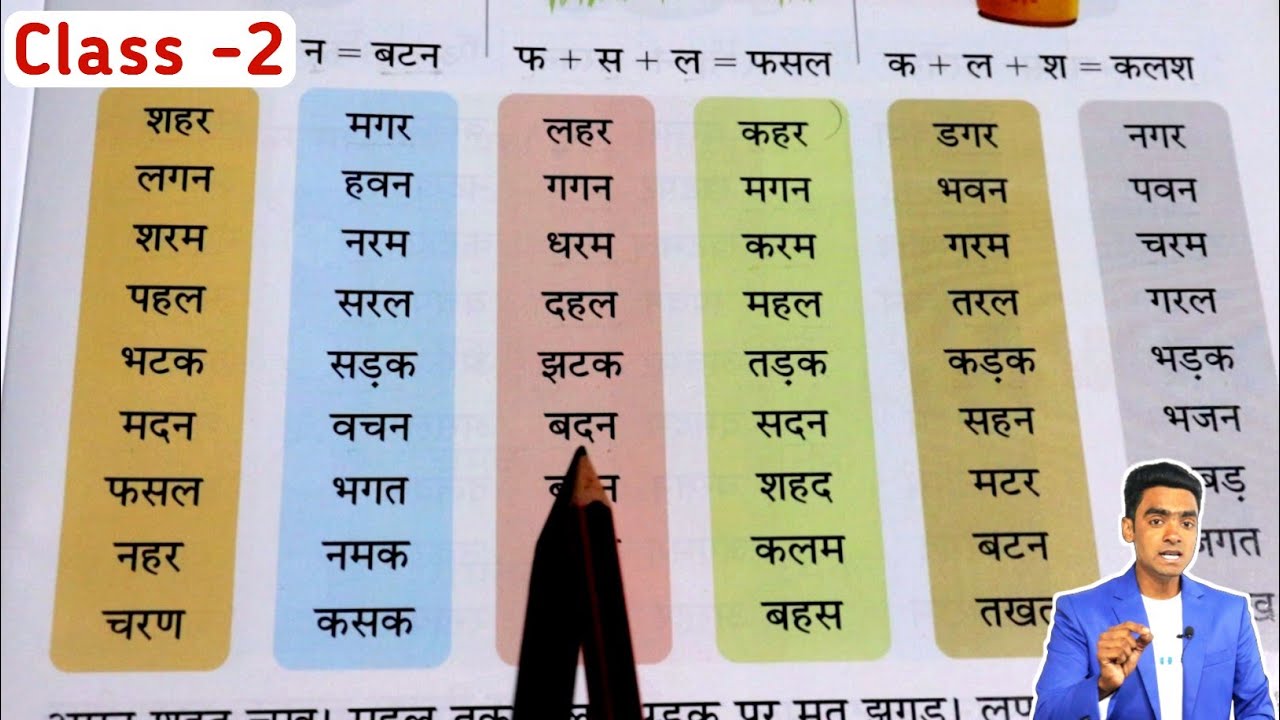 Class -2
न = बटन फ + स + ल = फसल क + ल + श = कलश
शहर मगर लहर कहर डगर नगर
लगन हवन गगन मगन भवन पवन
शरम नरम धरम करम गरम चरम
पहल सरल दहल महल तरल गरल
भटक सड़क झटक तड़क कड़क भड़क
मदन वचन बदन सदन सहन भजन
फसल भगत शहद मटर
नहर नमक कलम बटन
चरण कसक बहस
पर मत